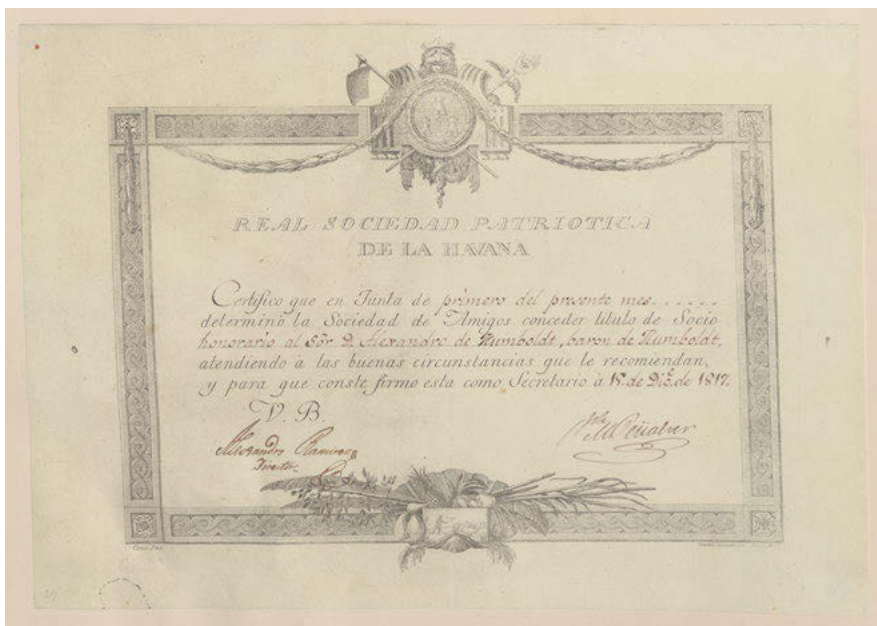 REAL SOCIEDAD PATRIOTICA
DE LA HAVANA
Certifico que en Junta de primero del presente mes......
determinó la Sociedad de Amigos conceder titulo de Socio
honorario al Sór D. Alexandro de Humboldt, baron de Humboldt,
atendiendo à las buenas circunstancias que le recomiendan,
y para que conste firmo esta como Secretario à 18. de Dic.e de 1817.
V. B.
Alexandro Ramirez
Director
Peñalver